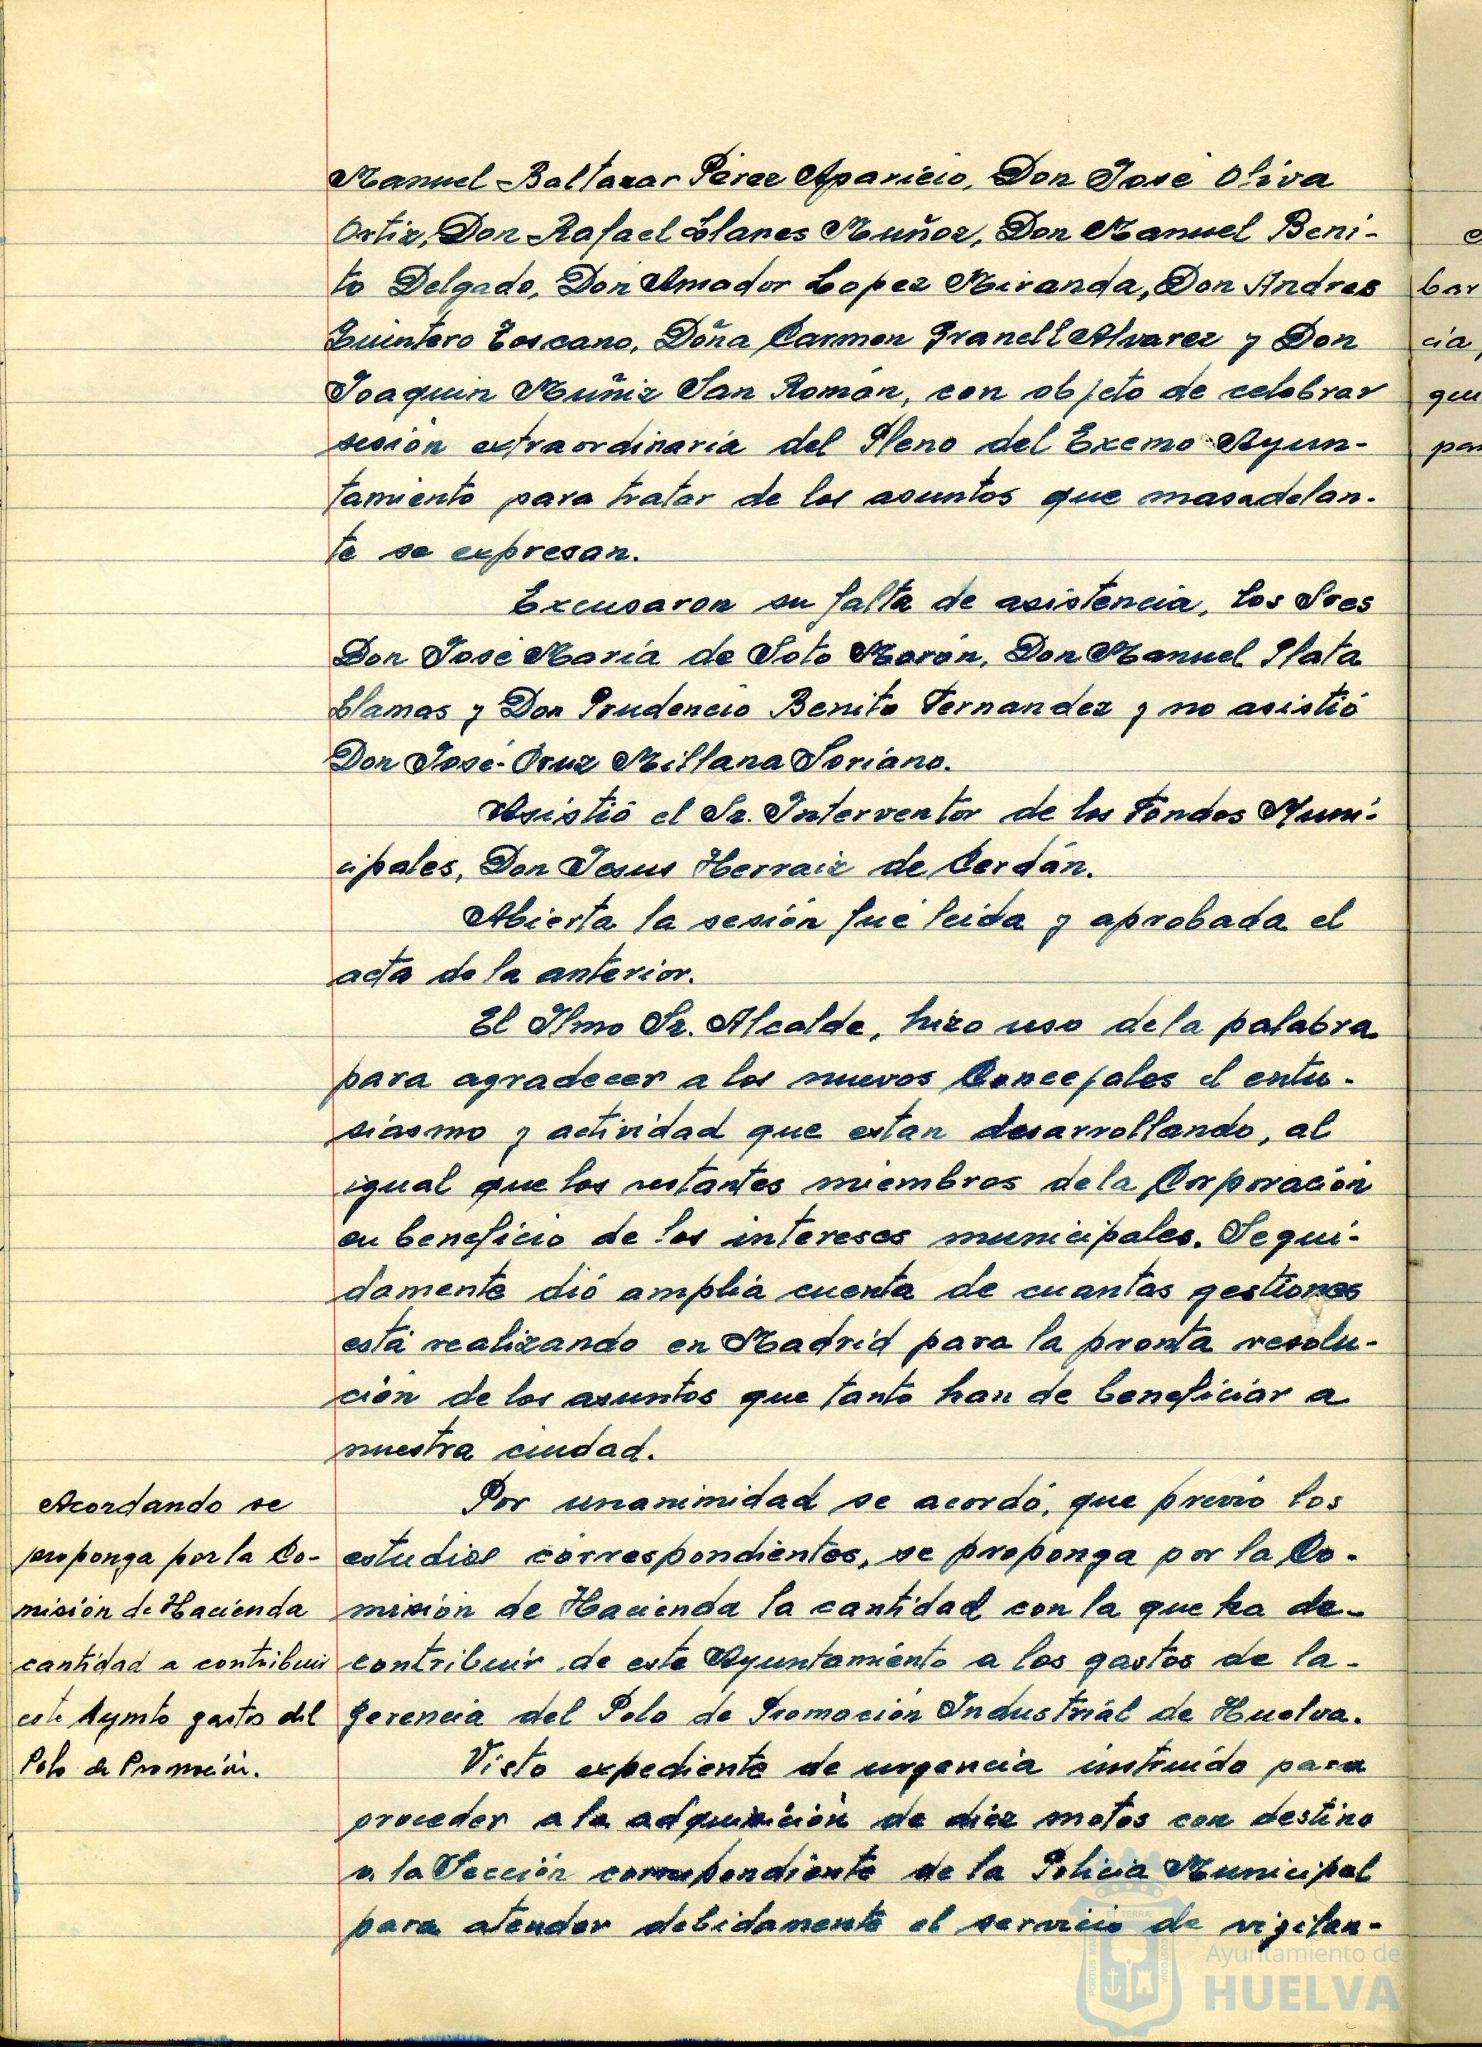 Manuel Baltazar Pérez Aparicio, Don José Oliva
Ortiz, Don Rafael Llanes Muñoz, Don Manuel Beni-
to Delgado, Don Amador Lopez Miranda, Don Andres
Quintero Toscano, Doña Carmen Granell Alvarez y Don
Joaquin Muñiz San Román, con objeto de celebrar
sesión extraordinaria del Pleno del Excmo Ayun-
tamiento para tratar de los asuntos que mas adelan-
te se expresan.
Excusaron su falta de asistencia, los Sres
Don José María de Soto Morón, Don Manuel Plata
Llamas y Don Prudencio Benito Fernandez y no asistió
Don José-Cruz Millana Soriano.
Asistió el Sr. Interventor de los Fondos Muni-
cipales, Don Jesus Herraiz de Cerdán.
Abierta la sesión fué leida y aprobada el
acta de la anterior.
El Ilmo Sr. Alcalde, hizo uso de la palabra
para agradecer a los nuevos Concejales el entu-
siasmo y actividad que estan desarrollando, al
igual que los restantes miembros de la Corporación
en beneficio de los intereses municipales. Segui-
damente dió amplia cuenta de cuantas gestiones
está realizando en Madrid para la pronta resolu-
ción de los asuntos que tanto han de beneficiar a
nuestra ciudad.
Acordando se
proponga por la Co-
misión de Hacienda
cantidad a contribuir
este Aymto gastos del
Polo de Promoción.
Por unanimidad se acordó, que previo los
estudios correspondientes, se proponga por la Co-
misión de Hacienda la cantidad con la que ha de
contribuir de este Ayuntamiento a los gastos de la
gerencia del Polo de Promoción Industrial de Huelva.
Visto expediente de urgencia instruído para
proceder a la adquisición de diez motos con destino
a la Sección correspondiente de la Policia Municipal
para atender debidamente el servicio de vigilan-
Ayuntamiento de
HUELVA
bar
cia,
que
par